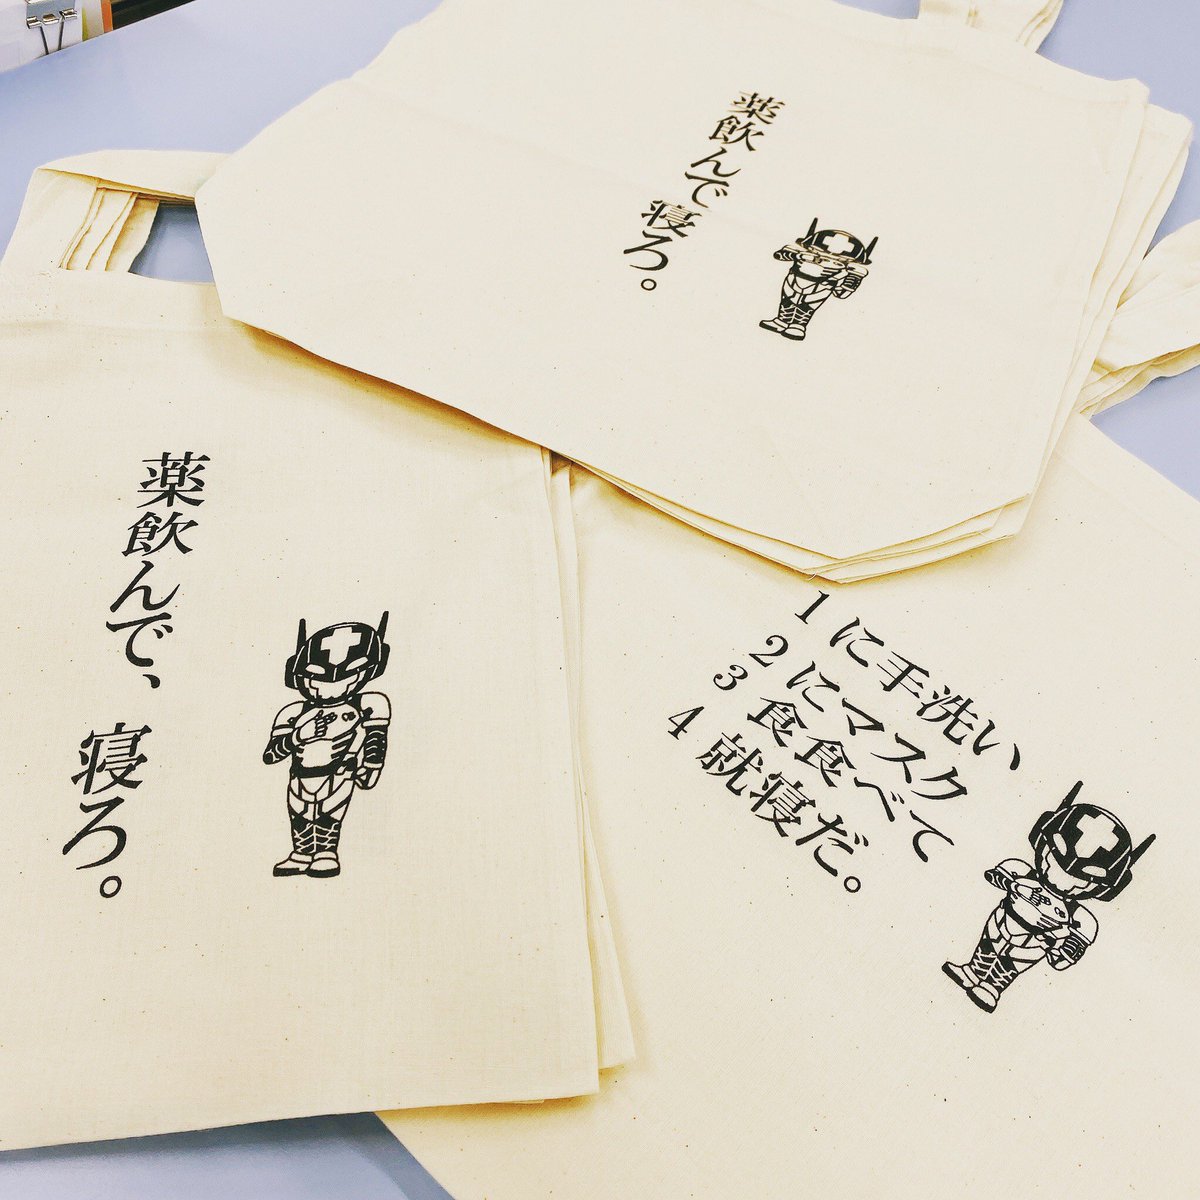 薬飲んで
寝ろ。
薬飲んで、
寝ろ。
1に手洗い
2にマスク
3食食べて
4就寝だ。